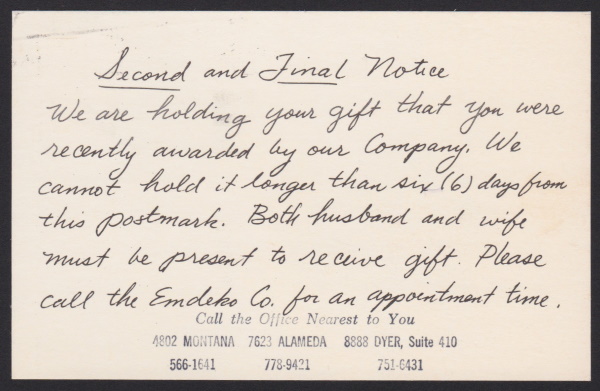 Second and Final Notice
We are holding your gift that you were
recently awarded by our Company. We
cannot hold it longer than six (6) days from
this postmark. Both husband and wife
must be present to receive gift. Please
call the Emdeko Co. for an appointment time.
Call the Office Nearest to You
4802 MONTANA 7623 ALAMEDA 8888 DYER, Suite 410
566-1641 778-9421 751-6431